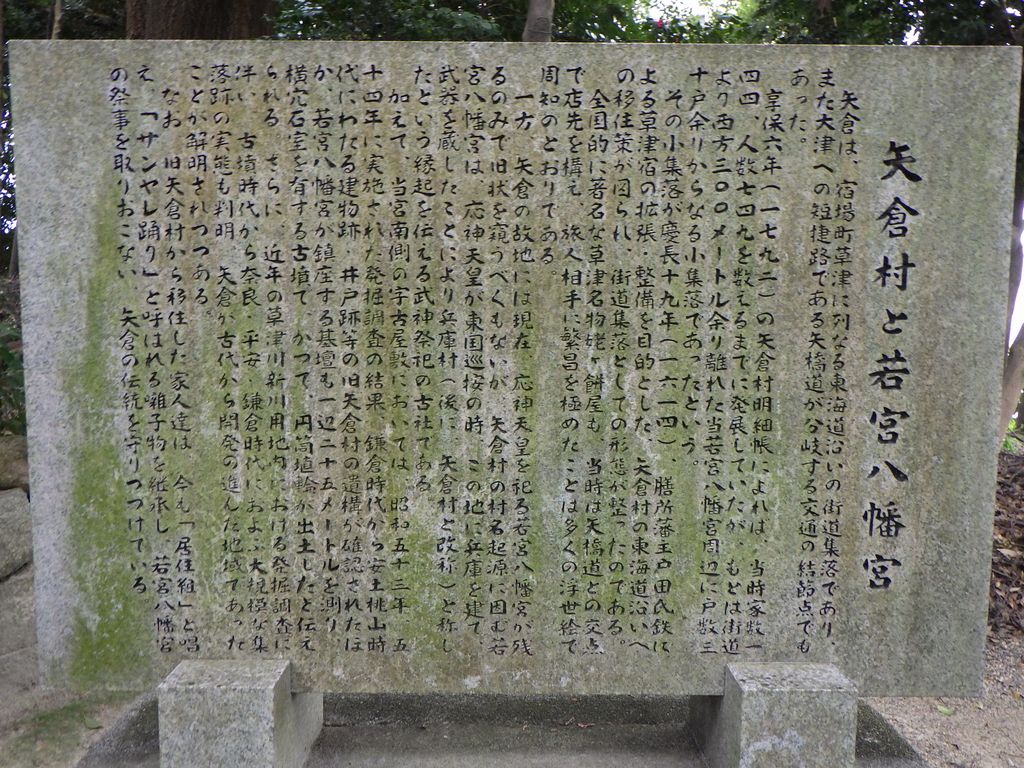 矢倉村と若宮八幡宮
矢倉は、宿場町草津に列なる東海道沿いの街道集落であり、
また大津への短捷路である矢橋道が分岐する交通の結節点でも
あった。
享保六年(一七九二)の矢倉村明細帳によれば、当時家数一
四四、人数七四九を数えるまでに発展していたが、もとは街道
より西方三〇〇メートル余り離れた当若宮八幡宮周辺に戸数三
十戸余りからなる小集落であったという。
その小集落が慶長十九年(一六一四)、膳所藩主戸田氏鉄に
よる草津宿の拡張・整備を目的とした、矢倉村の東海道沿いへ
の移住策が図られ、街道集落としての形態が整ったのである。
全国的に著名な草津名物姥ヶ餅屋も、当時は矢橋道との交点
で店先を構え、旅人相手に繁昌を極めたことは多くの浮世絵で
周知のとおりである。
一方、矢倉の故地には現在、応神天皇を祀る若宮八幡宮が残
るのみで旧状を窺うべくもないが、矢倉村の村名起源に因む若
宮八幡宮は、応神天皇が東国巡按の時、この地に兵庫を建て
武器を蔵したことにより兵庫村(後に、矢倉村と改称)と称し
たという縁起を伝える武神祭祀の古社である。
加えて、当宮南側の字古屋敷においては、昭和五十三年、五
十四年に実施された発掘調査の結果、鎌倉時代から安土桃山時
代にわたる建物跡、井戸跡等の旧矢倉村の遺構が確認されたほ
か、若宮八幡宮が鎮座する基壇も一辺二十五メートルを測り
横穴石室を有する古墳で、かつて、円筒埴輪が出土したと伝え
られる。さらに、近年の草津川新川用地内における発掘調査に
伴い、古墳時代から奈良・平安・鎌倉時代におよぶ大規模な集
落跡の実態も判明、矢倉が古代から開発の進んだ地域であった
ことが解明されつつある。
なお、旧矢倉村から移住した家人達は、今も「居住組」と唱
え、「サンヤレ踊り」と呼ばれる囃子物を継承し、若宮八幡宮
の祭事を取りおこない、矢倉の伝統を守りつづけている